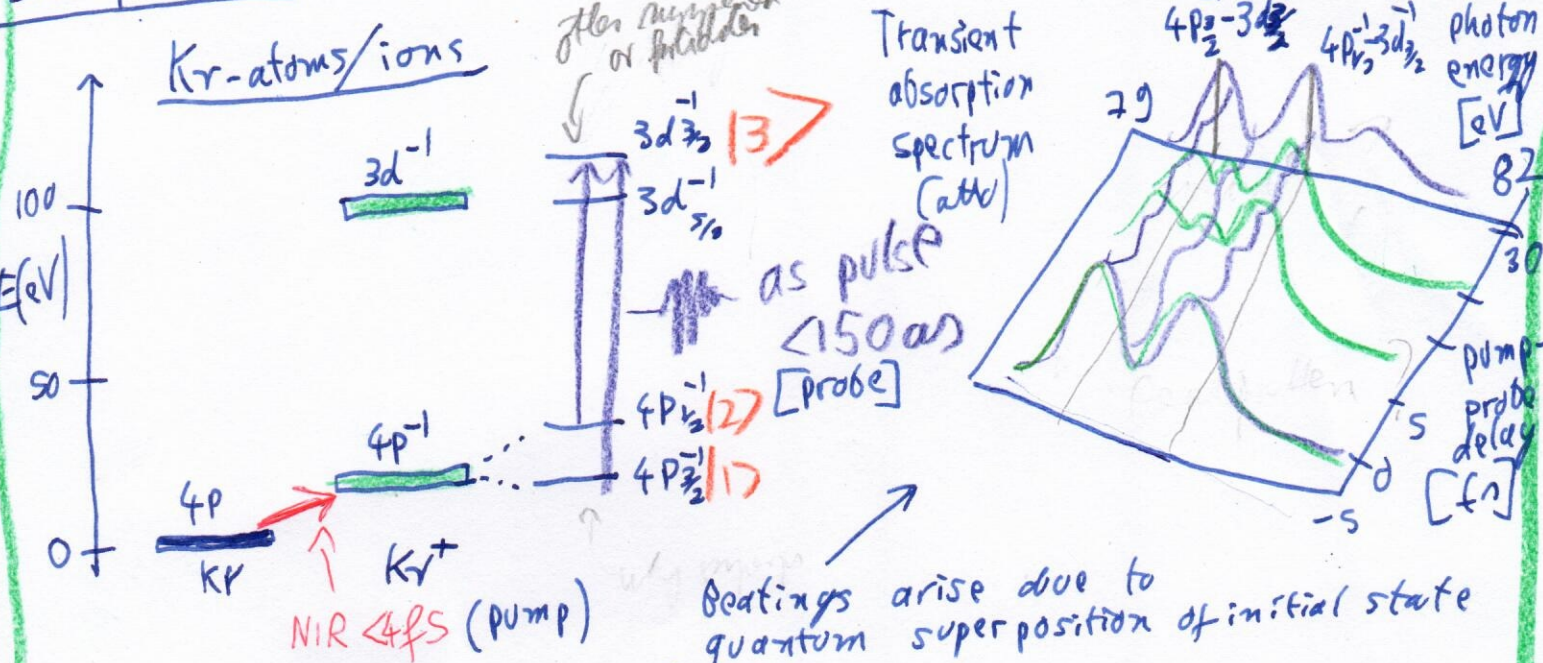 Kr-atoms/ions
or forbidden
E[eV]
100
50
0
3d⁻¹
4p⁻¹
4p
Kr
Kr⁺
NIR <4fs (pump)
3d⁻¹3/2 |3>
3d⁻¹5/2
as pulse
<150as
[probe]
4p⁻¹1/2 |2>
4p⁻¹3/2 |1>
Transient
absorption
spectrum
4p⁻¹1/2-3d⁻¹3/2
photon
energy
[eV]
79
82
30
pump-
probe
delay
[fs]
5
0
-5
Beatings arise due to
quantum superposition of initial state